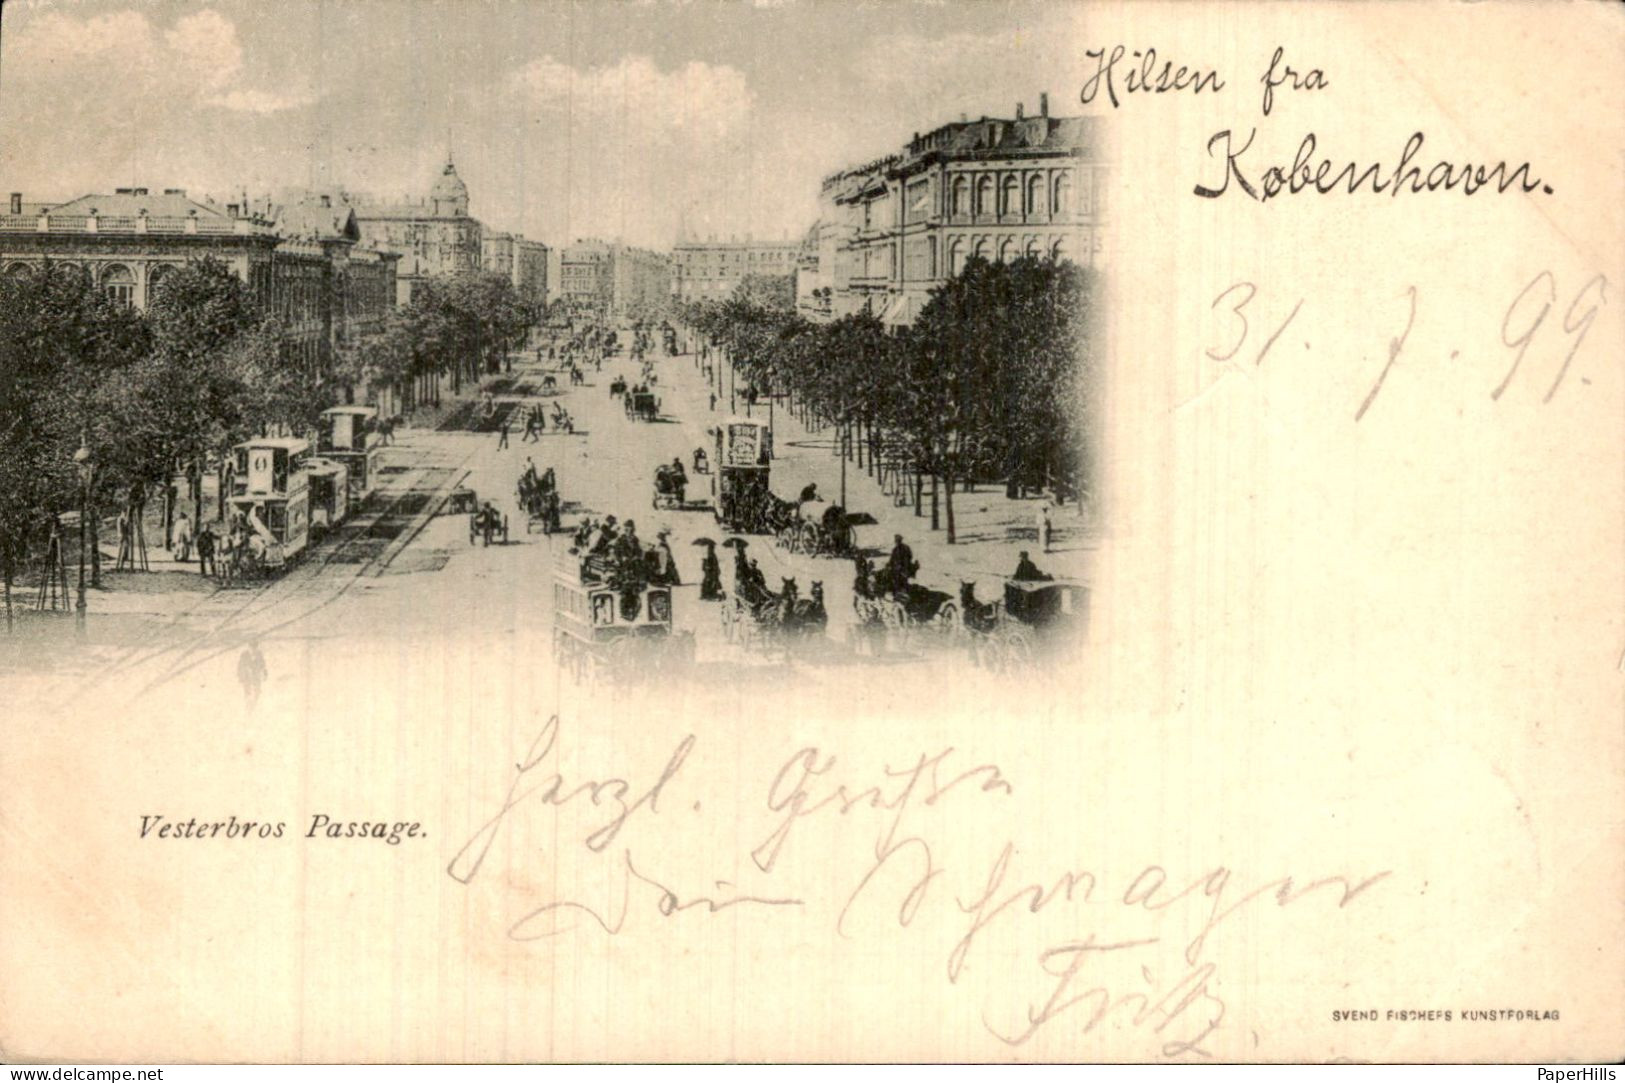 Hilsen fra
København.
31. 7. 99.
Vesterbros Passage.
Herzl. Grüße
Dein Schwager
Fritz.
SVEND FISCHERS KUNSTFORLAG
www.delcampe.net
PaperHills